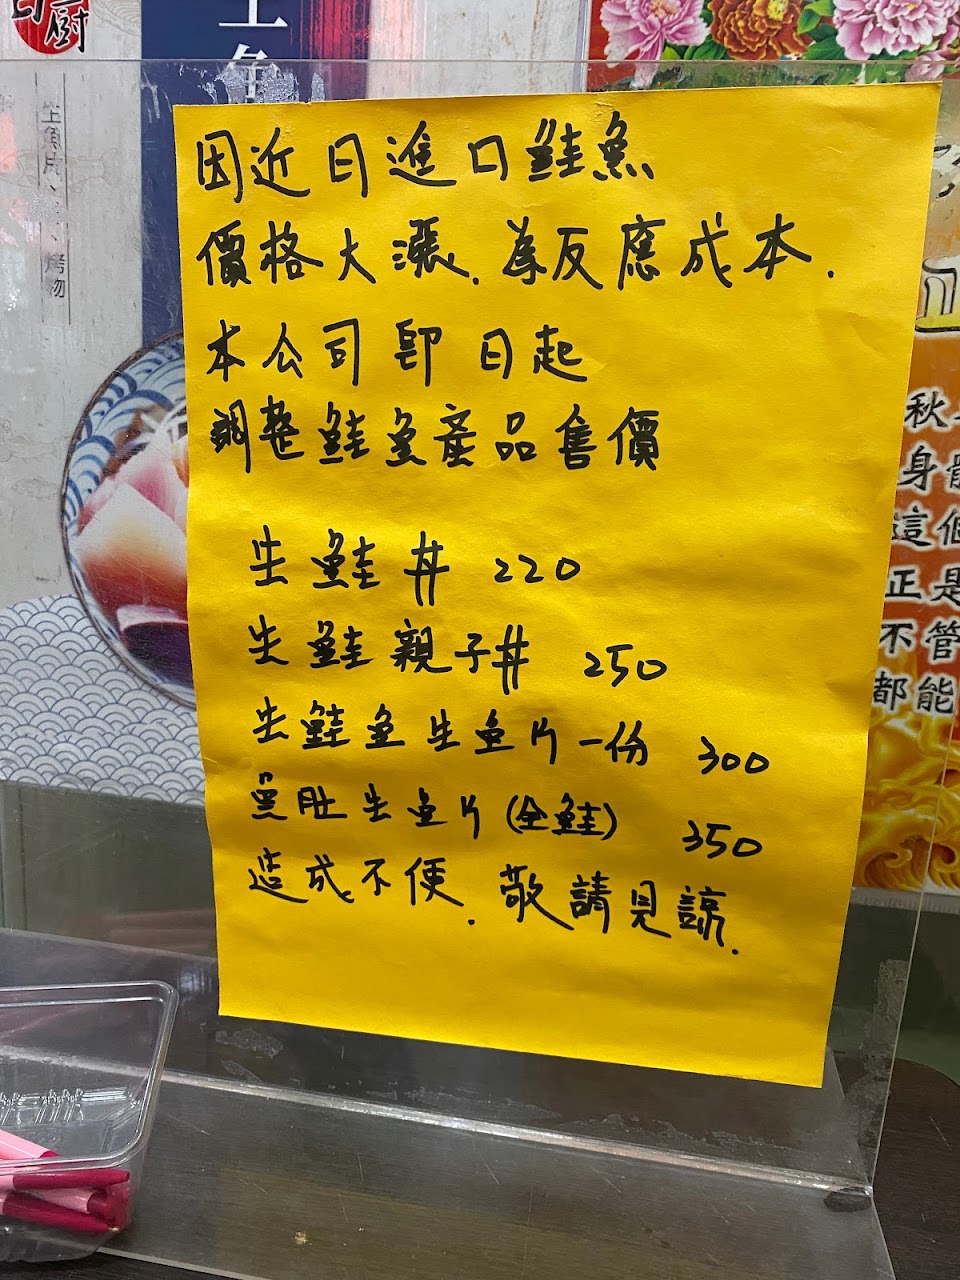 因近日進口鮭魚
價格大漲.為反應成本.
本公司即日起
調整鮭魚產品售價
生鮭丼 220
生鮭親子丼 250
生鮭魚生魚片一份 300
魚肚生魚片(全鮭) 350
造成不便.敬請見諒.
廚
生魚片
烤物
秋
身體
這個
正是
不管
都能